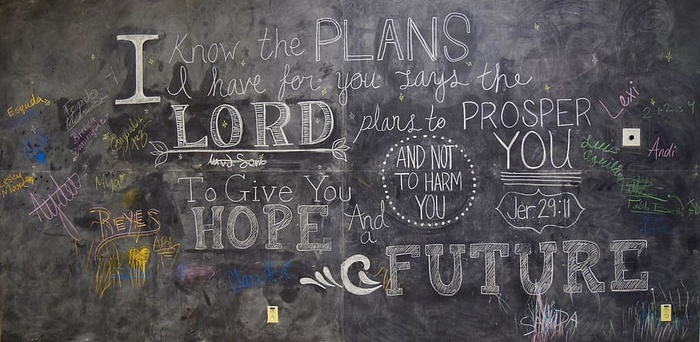 I Know the PLANS
I have for you says the
LORD plans to PROSPER
YOU
AND NOT
TO HARM
YOU
To Give You
HOPE And
a
FUTURE
Jer 29:11
Esquda
Lexi
Andi
Myla
REYES